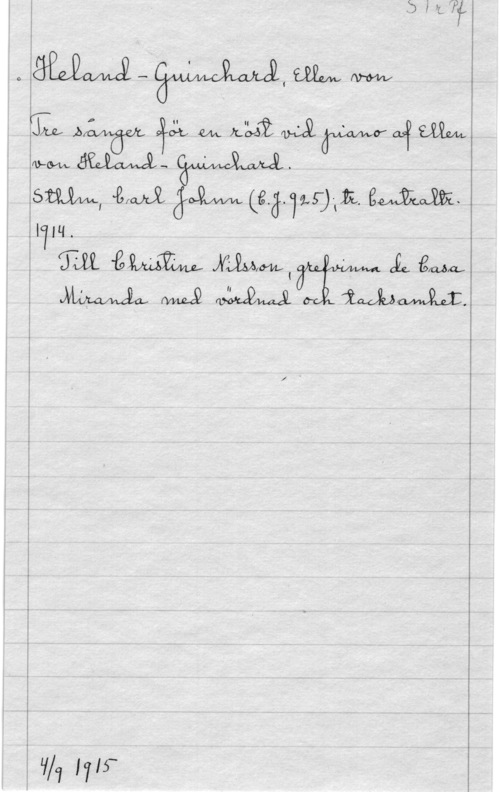 S 1 r Pf
Heland-Guinchard, Ellen von
Tre sånger för en röst vid piano af Ellen
von Heland-Guinchard.
Sthlm, Carl Johnn (C.J.925); tr. Centraltr.
1914.
Till Christine Nilsson, grefvinna de Casa
Miranda med vördnad och tacksamhet.
4/9 1915